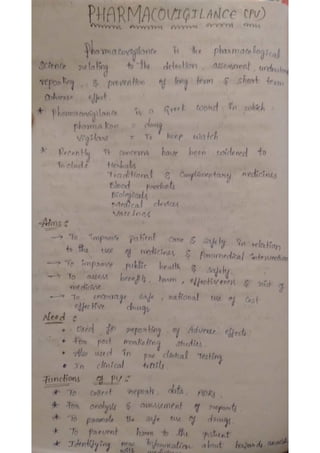 PHARMACOVIGILANCE (PV)
Pharmacovigilance is the pharmacological
science relating to the detection, assessment, understand
reporting, & prevention of long term & short term
adverse effect.
* Pharmacovigilance is a Greek word in which
pharmakon - drug
Vigilare - To keep watch
* Recently it concerns have been widened to
Include Herbals
Traditional & Complementary medicines
Blood products
Biologicals
Medical devices
Vaccines
Aims :
→ To improve patient care & safety in relation
to the use of medicines & paramedical intervention
→ To improve public health & safety.
→ To assess benefit, harm, effectiveness & risk of
medicine
→ To encourage safe, rational use of cost
effective drugs
Need :
• Used for reporting of Adverse effects
• For post marketing studies
• Also used in pre clinical testing
• In clinical
Functions of PV :
* To collect reports, data,
* For analysis & assessment of reports
* To promote the safe use of drugs.
* To prevent harm to the patient
* Identifying new information about hazards